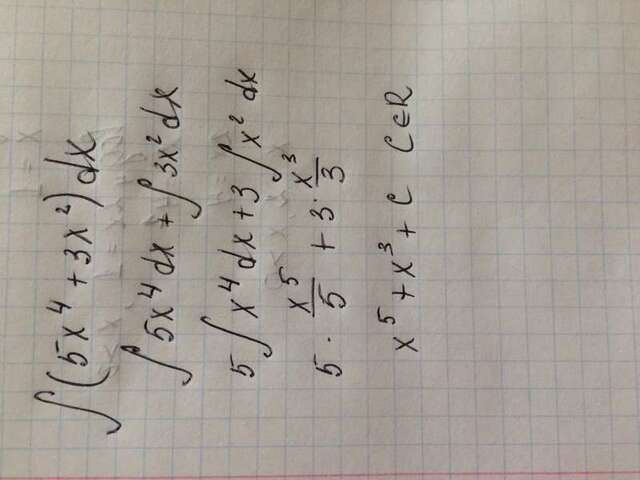 ∫(5x⁴ + 3x²) dx
∫ 5x⁴ dx + ∫ 3x² dx
5 ∫ x⁴ dx + 3 ∫ x² dx
5 · x⁵/5 + 3 · x³/3
x⁵ + x³ + C C∈R